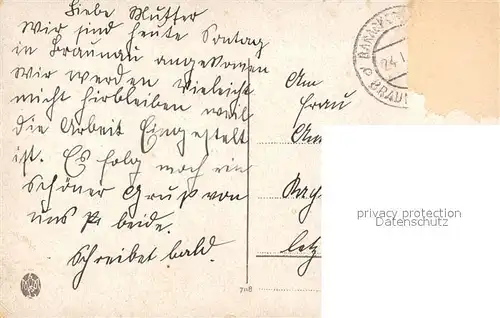 Liebe Mutter
Wir sind heute Sontag
in Braunau angekomen
Wir werden Vieleicht
nicht hirbleiben weil
die Arbeit Eingestelt
ist. Es folg noch ein
Schöner Gruß von
uns beide.
Schreibet bald.
An
Frau
privacy protection
Datenschutz
708
24.I.
BRAU